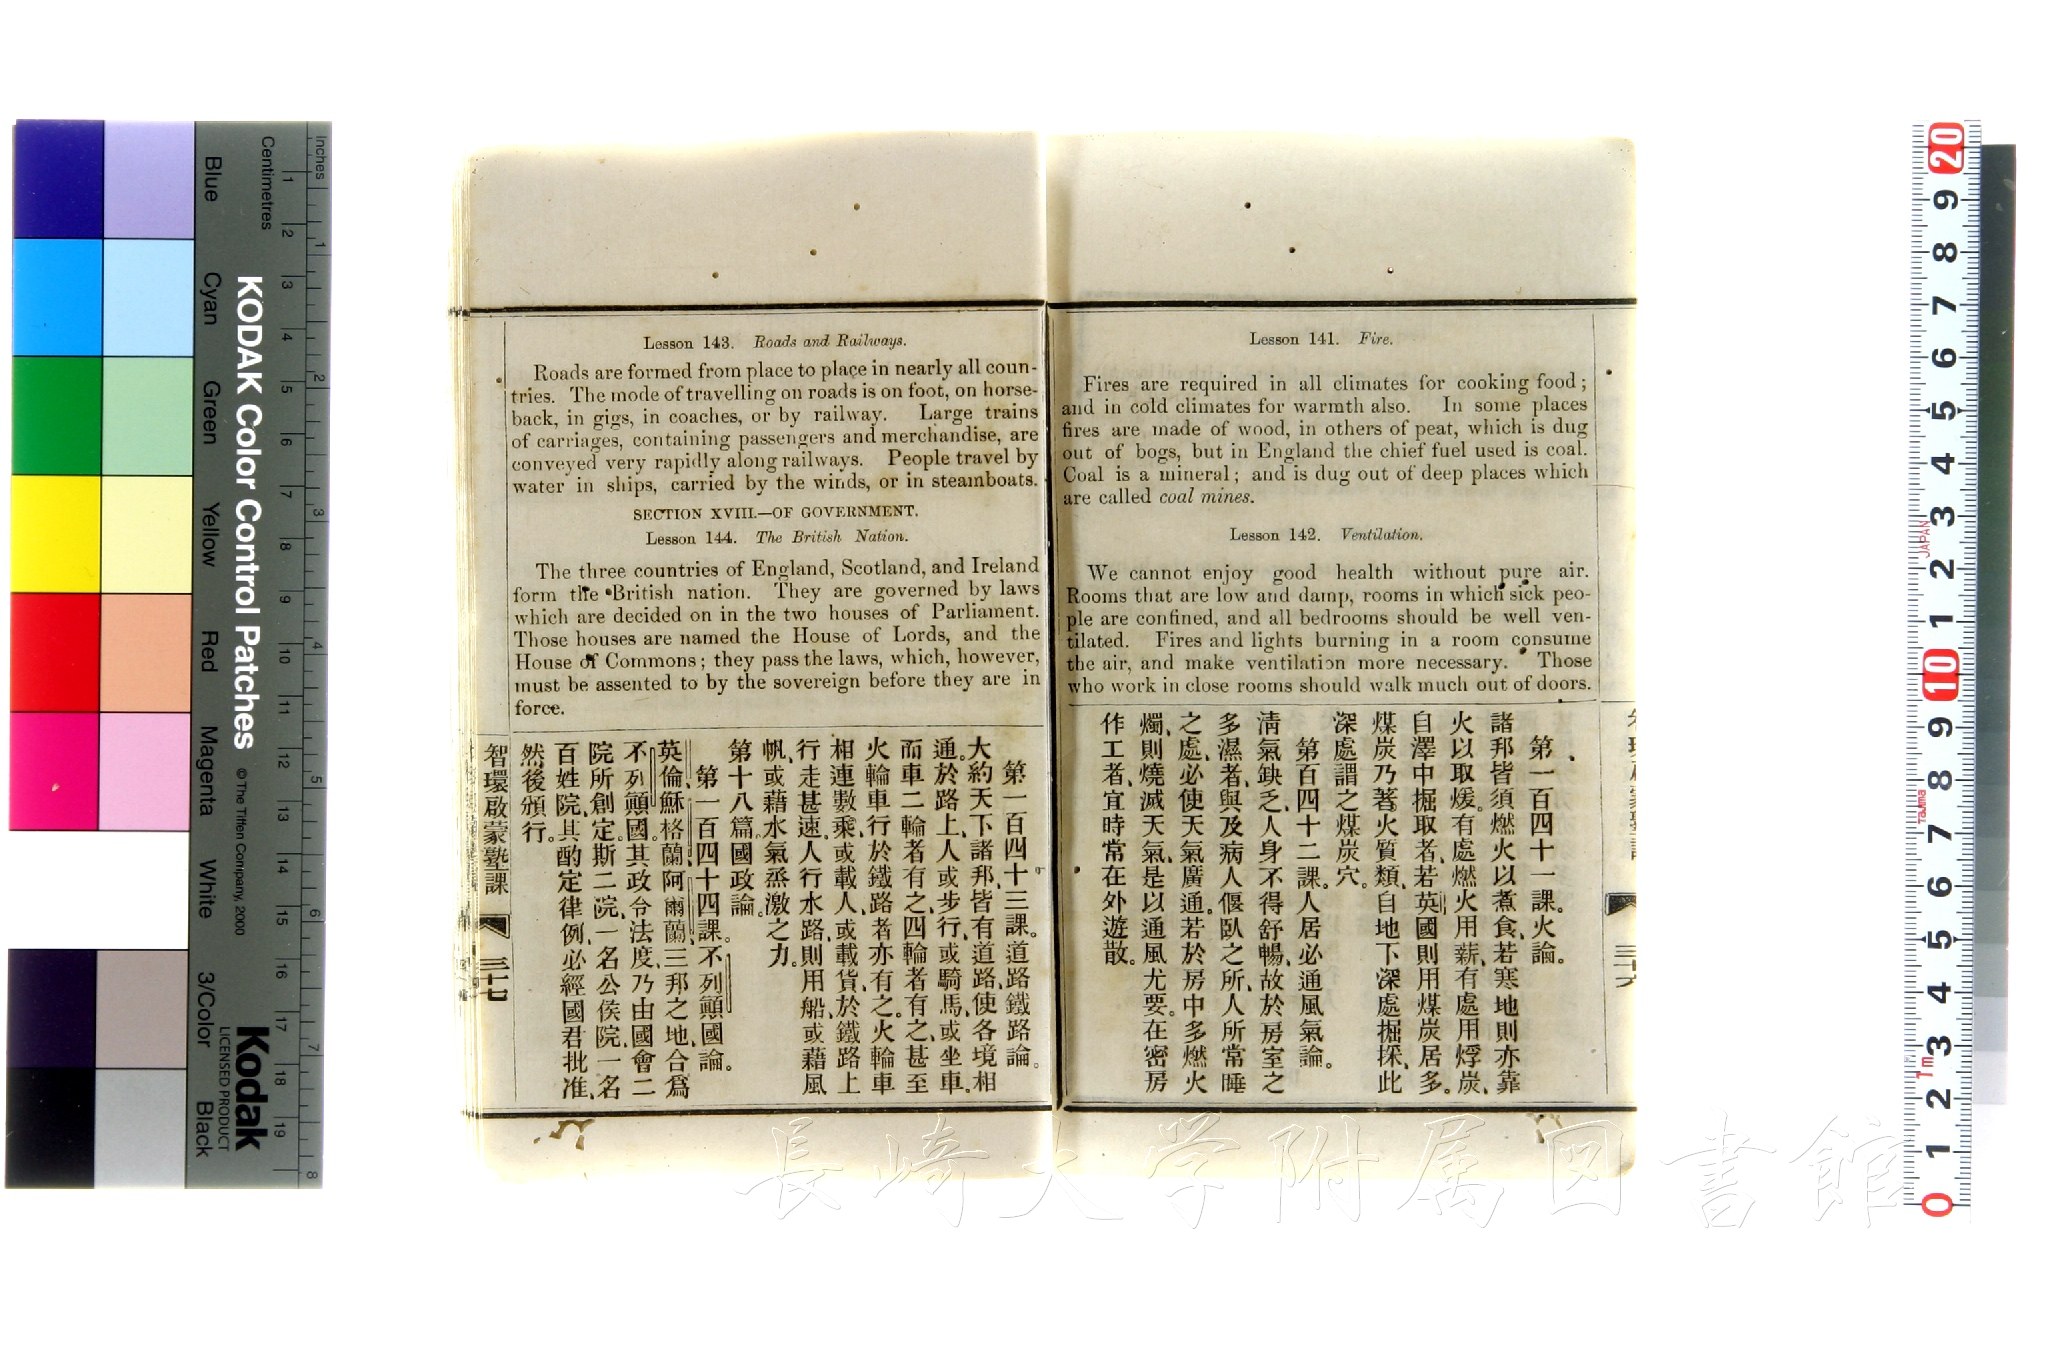 Lesson 141. Fire.
Fires are required in all climates for cooking food;
and in cold climates for warmth also. In some places
fires are made of wood, in others of peat, which is dug
out of bogs, but in England the chief fuel used is coal.
Coal is a mineral; and is dug out of deep places which
are called coal mines.
Lesson 142. Ventilation.
We cannot enjoy good health without pure air.
Rooms that are low and damp, rooms in which sick peo-
ple are confined, and all bedrooms should be well ven-
tilated. Fires and lights burning in a room consume
the air, and make ventilation more necessary. Those
who work in close rooms should walk much out of doors.
第一百四十一課。火論。
諸邦皆須燃火以煮食、若寒地則亦靠
火以取煖。有處燃火用薪、有處用烰炭、
自澤中掘取者、若英國則用煤炭居多。
煤炭乃著火質類、自地下深處掘採、此
深處謂之煤炭穴。
第百四十二課。人居必通風氣論。
淸氣缺乏、人身不得舒暢、故於房室之
多濕者、與及病人偃臥之所、人所常睡
之處、必使天氣廣通。若於房中多燃火
燭、則燒滅天氣、是以通風尤要。在密房
作工者、宜時常在外遊散。
Lesson 143. Roads and Railways.
Roads are formed from place to place in nearly all coun-
tries. The mode of travelling on roads is on foot, on horse-
back, in gigs, in coaches, or by railway. Large trains
of carriages, containing passengers and merchandise, are
conveyed very rapidly along railways. People travel by
water in ships, carried by the winds, or in steamboats.
SECTION XVIII.—OF GOVERNMENT.
Lesson 144. The British Nation.
The three countries of England, Scotland, and Ireland
form the British nation. They are governed by laws
which are decided on in the two houses of Parliament.
Those houses are named the House of Lords, and the
House of Commons; they pass the laws, which, however,
must be assented to by the sovereign before they are in
force.
第一百四十三課。道路鐵路論。
大約天下諸邦、皆有道路、使各境相
通。於路上、人或步行、或騎馬、或坐車。
而車二輪者有之、四輪者有之、甚至
火輪車行於鐵路者亦有之。火輪車
相連數乘、或載人、或載貨、於鐵路上
行走甚速。人行水路、則用船、或藉風
帆、或藉水氣烝激之力。
第十八篇國政論。
第一百四十四課。不列顚國論。
英倫、穌格蘭、阿爾蘭、三邦之地、合爲
不列顚國。其政令法度、乃由國會二
院所創定。斯二院、一名公侯院、一名
百姓院、其酌定律例、必經國君批准、
然後頒行。
智環啟蒙塾課
三十七
KODAK Color Control Patches
© The Tiffen Company, 2000
Kodak
LICENSED PRODUCT
Inches
Centimetres
Blue
Cyan
Green
Yellow
Red
Magenta
White
3/Color
Black
1 2 3 4 5 6 7 8 9 10 11 12 13 14 15 16 17 18 19
1 2 3 4 5 6 7 8
20 9 8 7 6 5 4 3 2 1 10 9 8 7 6 5 4 3 2 1 0
JAPAN
Tajima
1m
長崎大学附属図書館